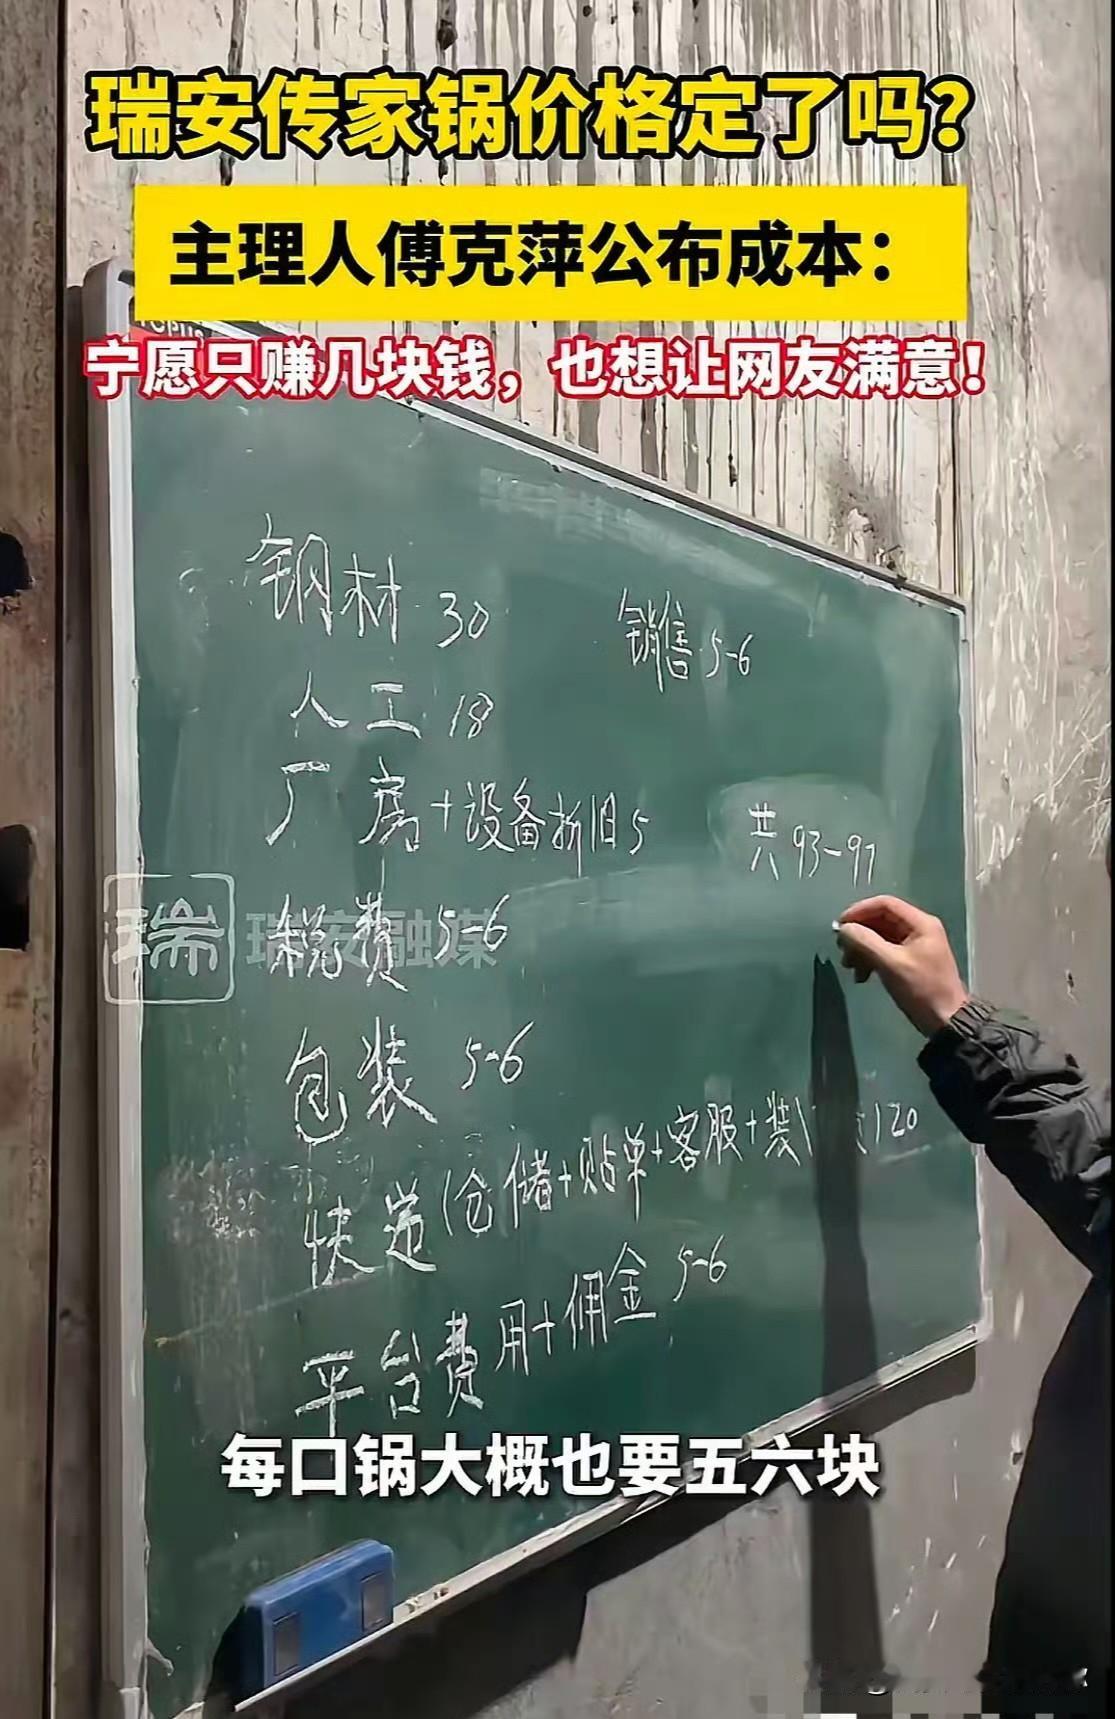 瑞安传家锅价格定了吗？
主理人傅克萍公布成本：
宁愿只赚几块钱，也想让网友满意！
钢材 30
人工 18
厂房+设备折旧5
税费 5-6
包装 5-6
快递(仓储+贴单+客服+装 )20
平台费用+佣金 5-6
销售 5-6
共 93-97
瑞 瑞安融媒
每口锅大概也要五六块